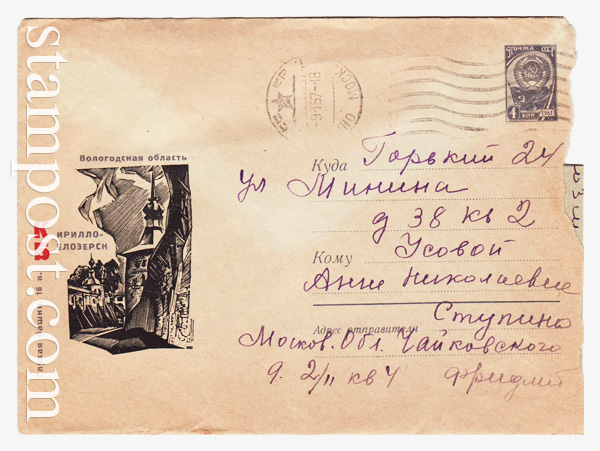 stampost.com
СССР
МОСК.
-9.1.67-18
ПОЧТА СССР
4 КОП 1961
Вологодская область
КИРИЛЛО-
БЕЛОЗЕРСК
башня 16 в.
Куда Горький 24
ул Минина
д 38 кв 2
Кому Усовой
Анне Николаевне
Ступино
Адрес отправителя
Москов. Обл. Чайковского
д. 2/11 кв 4